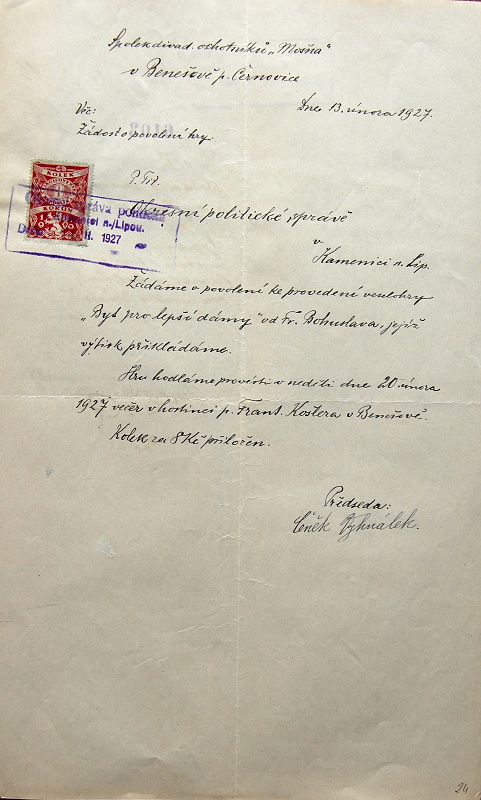 Spolek divad. ochotníků „Mošna"
v Benešově p. Černovice
Dne 13. února 1927.
Věc:
Žádost o povolení hry.
P. Tit.
KOLEK
Okresní politické správě
n./Lipou.
II. 1927
v
Kamenici n. Lip.
Žádáme o povolení ke provedení veselohry
„Byt pro lepší dámy" od Fr. Bohuslava, jejíž
výtisk přikládáme.
Hru hodláme provésti v neděli dne 20. února
1927 večer v hostinci p. Frant. Kostera v Benešově.
Kolek za 8 Kč přiložen.
Předseda:
Čeněk Vyhnálek.
24